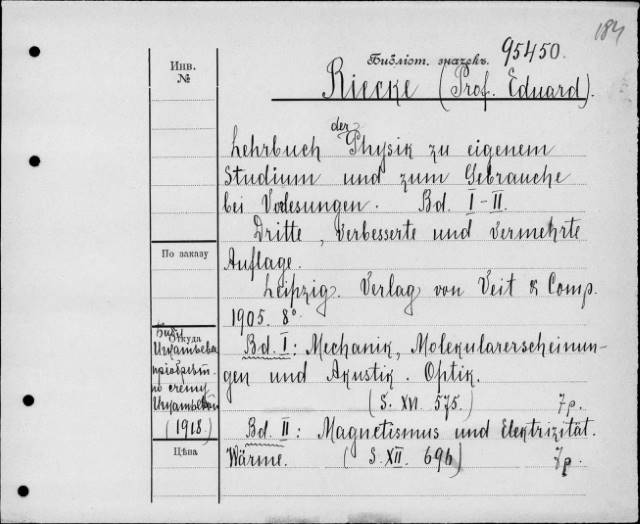 184
Библіот. значекъ. 95450.
Инв.
№
Riecke (Prof. Eduard).
der
Lehrbuch Physik zu eigenem
Studium und zum Gebrauche
bei Vorlesungen. Bd. I-II.
Dritte, verbesserte und vermehrte
Auflage.
По заказу
Leipzig. Verlag von Veit & Comp.
1905. 8°
Откуда
Игнатьева
пріобрѣт.
по счету
(1918)
Bd. I: Mechanik, Molekularerscheinun-
gen und Akustik. Optik.
(S. XVI. 575.) 7р.
Bd. II: Magnetismus und Elektrizität.
Цѣна
Wärme. (S. XII. 696) 7р.